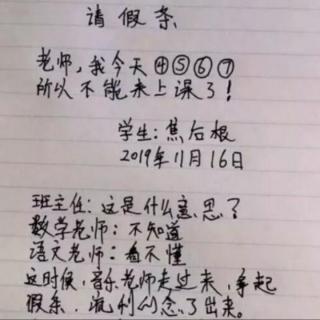 请假条
老师，我今天④⑤⑥⑦
所以不能来上课了！
学生：焦后根
2019年11月16日
班主任：这是什么意思？
数学老师：不知道
语文老师：看不懂
这时候，音乐老师走过来，拿起
假条，流利的念了出来。